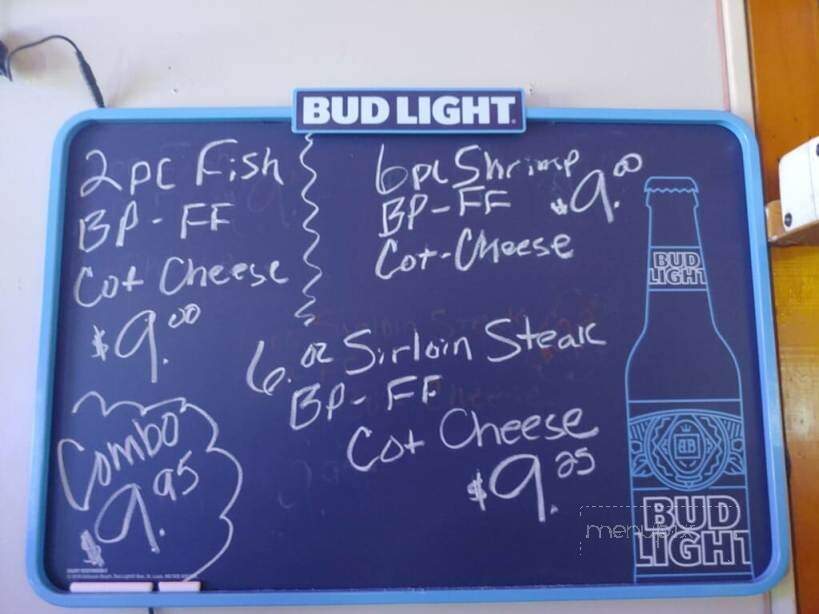 BUD LIGHT
2 pc Fish
BP-FF
Cot Cheese
$9.00
6 pc Shrimp
BP-FF $9.00
Cot-Cheese
6. oz Sirloin Steak
BP-FF
Cot Cheese
$9.25
Combo
9.95
BUD
LIGHT
BUD
LIGHT
menupix